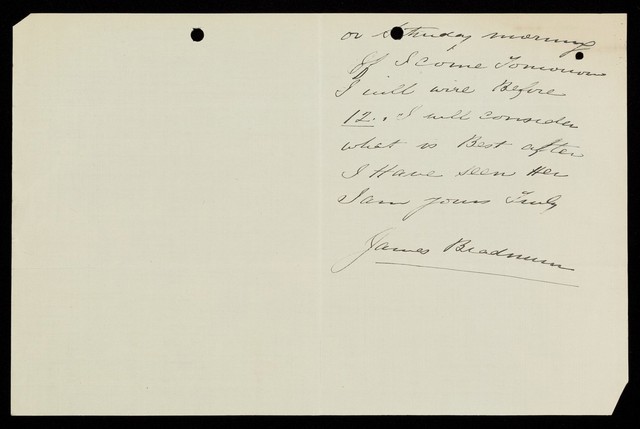 or Saturday morning
If I come Tomorrow
I will wire Before
12. I will consider
what is Best after
I Have seen Her
I am yours Truly
James Bradnum